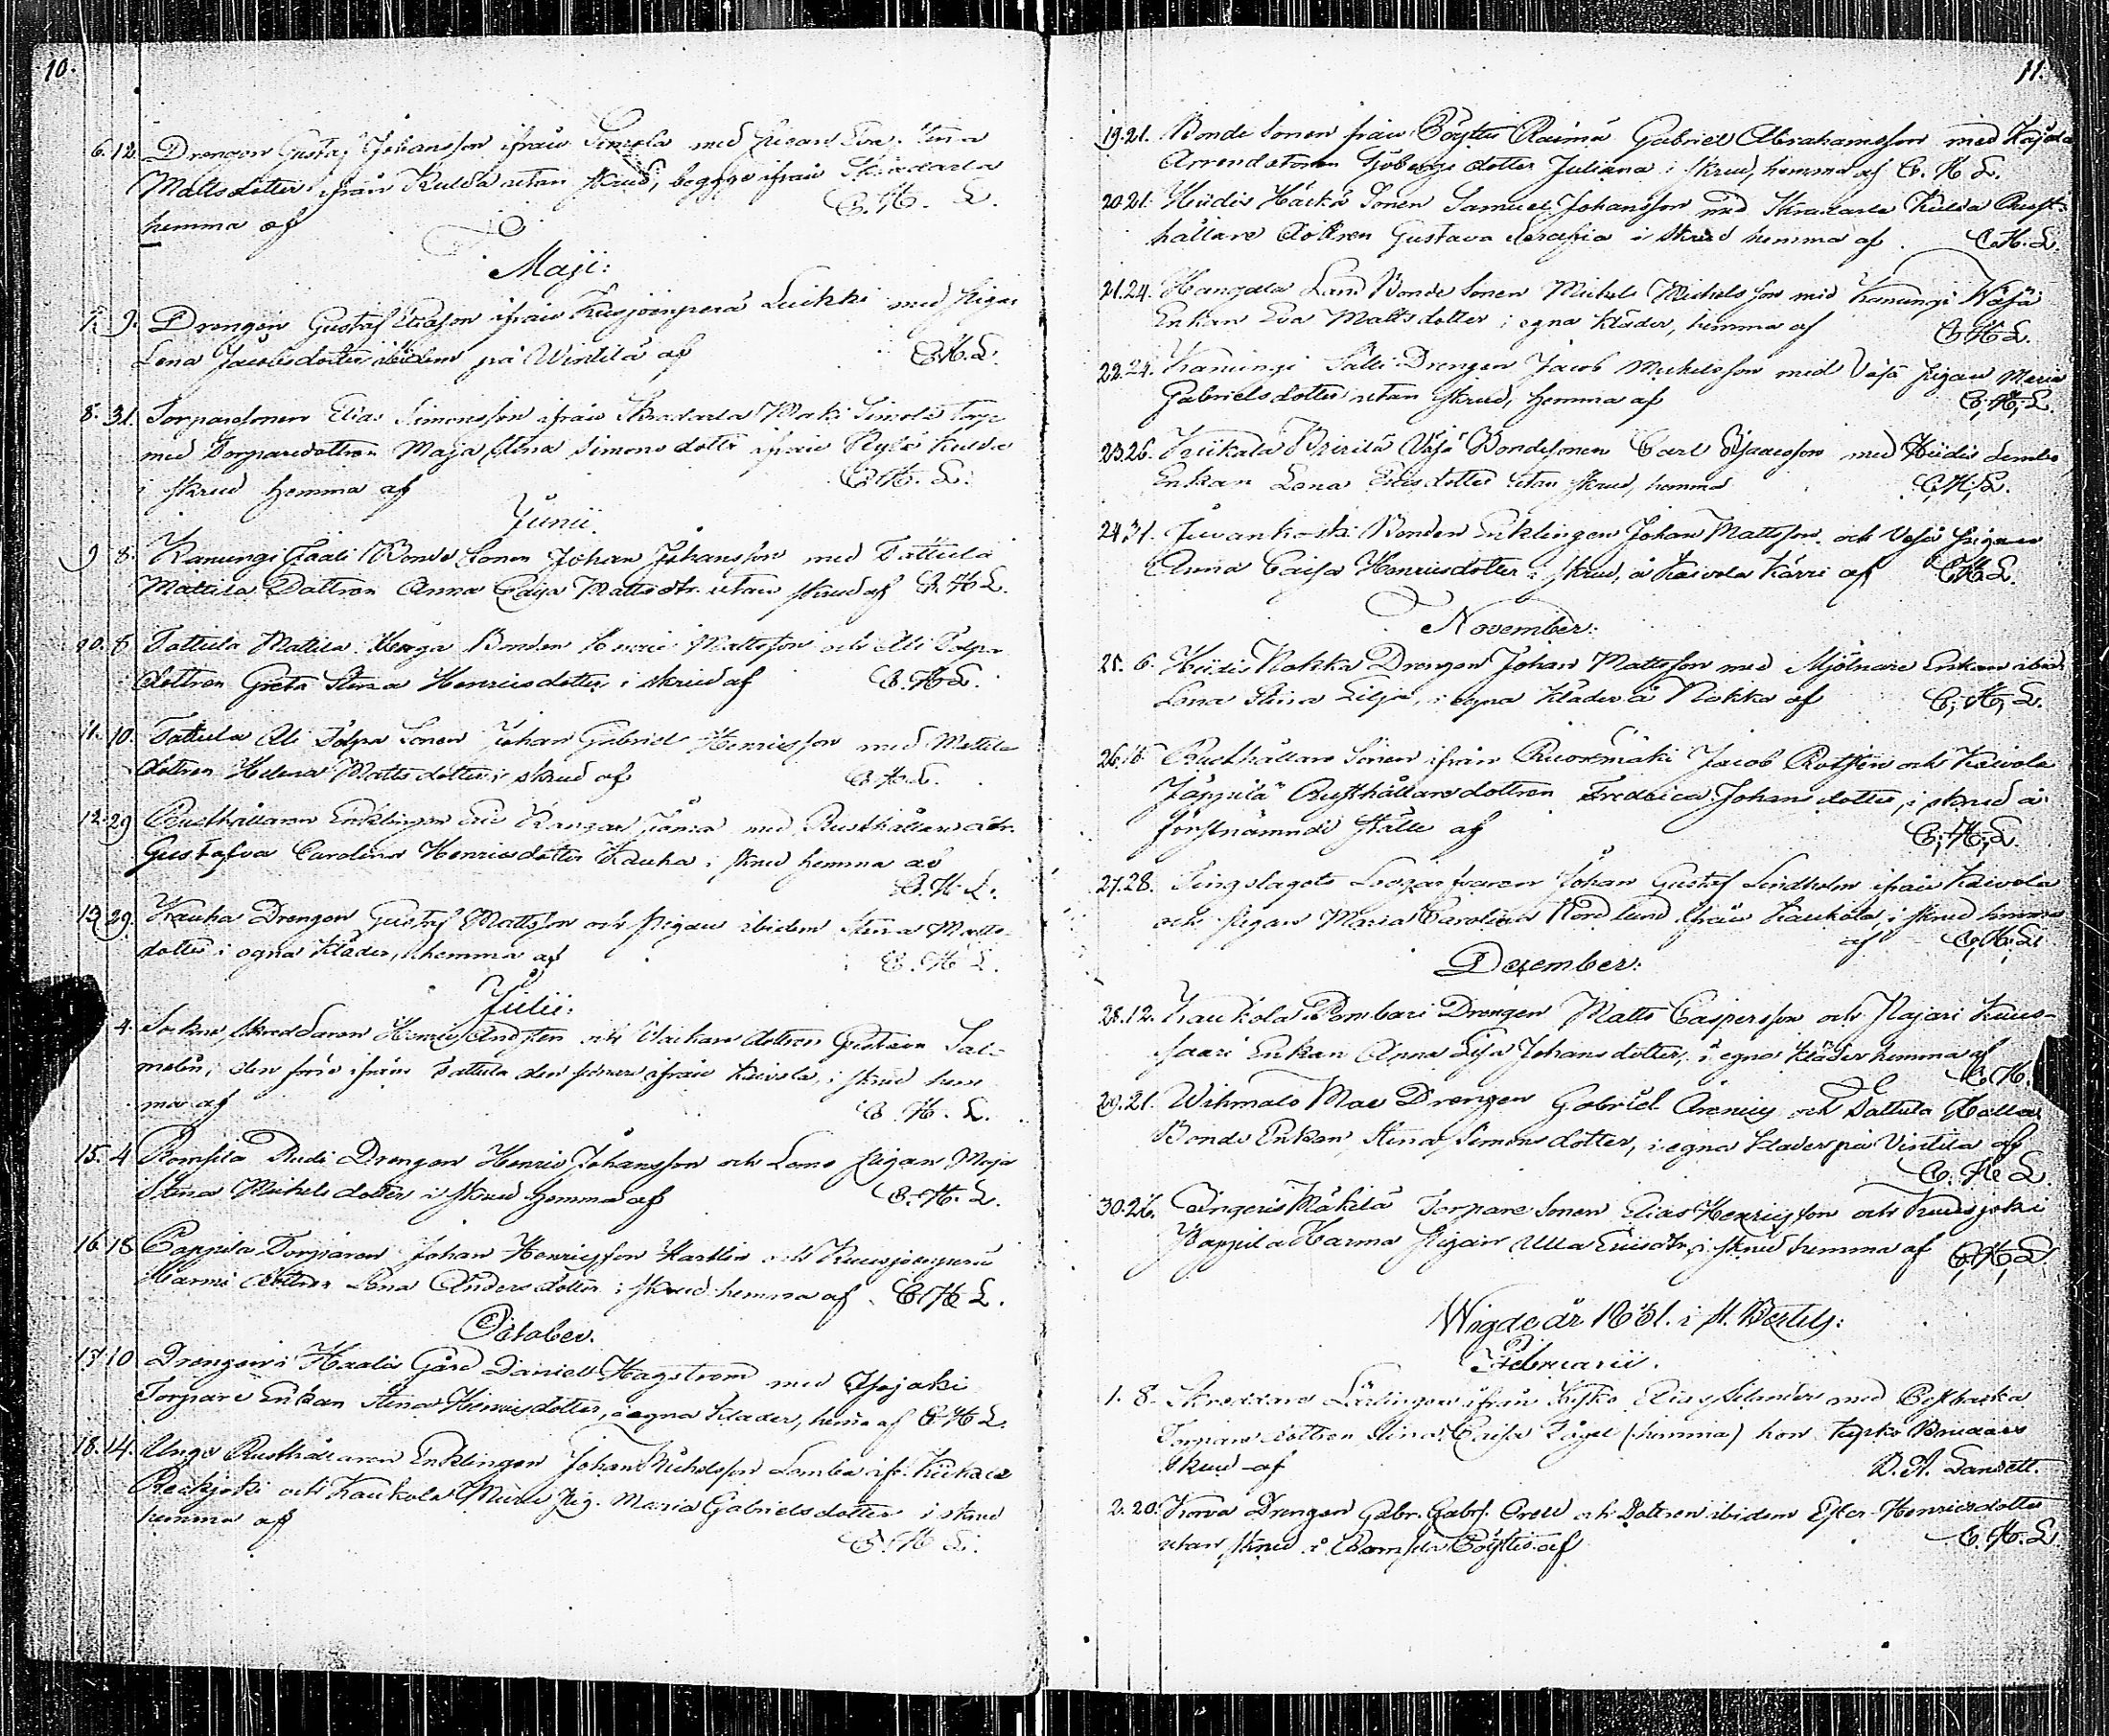 10.
6. 12. Drengen Gustaf Johansson ifrån Simola med Pigan Eva Stina
Matts dotter ifrån Kulda utan skrud, begge ifrån Skradarla
hemma af C. H. L.
Maji:
7. 9. Drengen Gustaf Eliasson ifrån Kuusjoenperä Leikki med Pigan
Lena Jacobsdotter ibidem på Wintilä af C. H. L.
8. 31. Torparesonen Elias Simonsson ifrån Skradarla Maki Simola Torp
med Torparedottren Maja Stina Simons dotter ifrån Kylä Kulda
i skrud hemma af C. H. L.
Junii
9 8. Kanungi Jaali Bonde Sonen Johan Johansson med Tattula
Mattila Dottren Anna Cajsa Matts dtr. utan skrud af C. H. L.
10. 8 Tattula Mattila Bonden Henric Mattsson och Ali Tolpa
dottren Greta Stina Henricsdotter i skrud af C. H. L.
11. 10. Tattula Ali Tolpa Sonen Johan Gabriel Henricsson med Mattila
dottren Helena Matts dotter i skrud af C. H. L.
12. 29 Rusthållaren Enklingen med Rusthållare dtr.
Gustafva Carolina Henricsdotter Kauha i skrud hemma af
C. H. L.
13 29. Kauha Drengen Gustaf Mattsson och Pigan ibidem Stina Matts
dotter i egna kläder, hemma af C. H. L.
Julii:
4. Sockne skreddaren Henric och dottren Gustava Sal-
melin, den förre ifrån Tattula den senare ifrån Kaivola, i skrud hem
ma af C. H. L.
15. 4 Romsila Rudi Drengen Henric Johansson och Pigan Maja
Stina Michelsdotter i skrud hemma af C. H. L.
16. 18 Pappila Torparen Johan Henricsson Hartlin och Kuusjoenperä
Harmi dottren Lena Andersdotter i skrud hemma af C. H. L.
October.
17 10 Drengen i Haalis Gård Daniel Hagström med Isojoki
Torpare Enkan Stina Henricsdotter, i egna kläder, hema af C. H. L.
18. 14. Unge Rusthållaren Enklingen Johan Michelsson Lemba ifr. Kiikala
Rekijoki och Kaukola Pig. Maria Gabrielsdotter i skrud
hemma af C. H. L.
11.
19. 21. Bonde Sonen från Pöytis Raimä Gabriel Abrahamsson med Kajola
Arrendatoren Sjöbergs dotter Juliana i skrud, hemma af C. H. L.
20. 21. Hiidis Härkä Sonen Samuel Johansson med Skradarla Kulda Rust-
hållare dottren Gustava Serafia i skrud hemma af C. H. L.
21. 24. Hangala Land Bonde Sonen Michel Michelsson med Kanungi Wäsä
Enkan Eva Mattsdotter i egna kläder, hemma af C. H. L.
22. 24. Kanungi Tälli Drengen Jacob Michelsson med Väsä Pigan Maria
Gabrielsdotter utan skrud, hemma af C. H. L.
23. 26. Bondesonen Carl Isaacsson med Hiidis Lembo
Enkan Lena Ericsdotter utan skrud, hemma C. H. L.
24. 31. Juvankoski Bonden Enklingen Johan Mattsson och Väsä Pigan
Anna Caisa Henricsdotter i skrud, å Kaivola Kärri af C. H. L.
November:
25. 6. Hiidis Nokka Drengen Johan Mattsson med Mjölnare Enkan ibid.
Lena Stina Lilja, i egna kläder å Nokka af C. H. L.
26. 16. Rusthållare Sonen ifrån Ruorsmäki Jacob Rothen och Kaivola
Jäppilä Rusthållaredottren Fredrica Johans dotter, i skrud å
förstnämnde ställe af C. H. L.
27. 28. Tingslagets Johan Gustaf Lindholm ifrån Kaivola
och Pigan Maria Carolina Nordlund från Kaukola, i skrud hemma
af C. H. L.
Desember:
28. 12. Kaukola Pombari Drengen Matts Caspersson och Najari Kuus-
saari Enkan Anna Lisa Johans dotter, i egna kläder hemma af
C. H.
29. 21. Wihmalo Mae Drengen Gabriel och Tattula Halla
Bonde Enkan Stina Simons dotter, i egna kläder på Vintila af
C. H. L.
30. 26. Angeris Mäkilä Torpare Sonen Elias Henricsson och Kuusjoki
Pappila Harma Pigan Ulla Ericsdtr, i skrud hemma af C. H. L.
Wigde år 1831. i St. Bertils:
Februarii.
1. 8. Skreddare Lärlingen ifrån Kisko med
Torpare dottren Stina Caisa Fågel (hemma) hon
skrud af D. A. Sandell.
2. 20. Korva Drengen Gabr. Gabrs. Orell och Dottren ibidem Ester Henricsdotter
utan skrud i Romsila Pöytis af C. H. L.